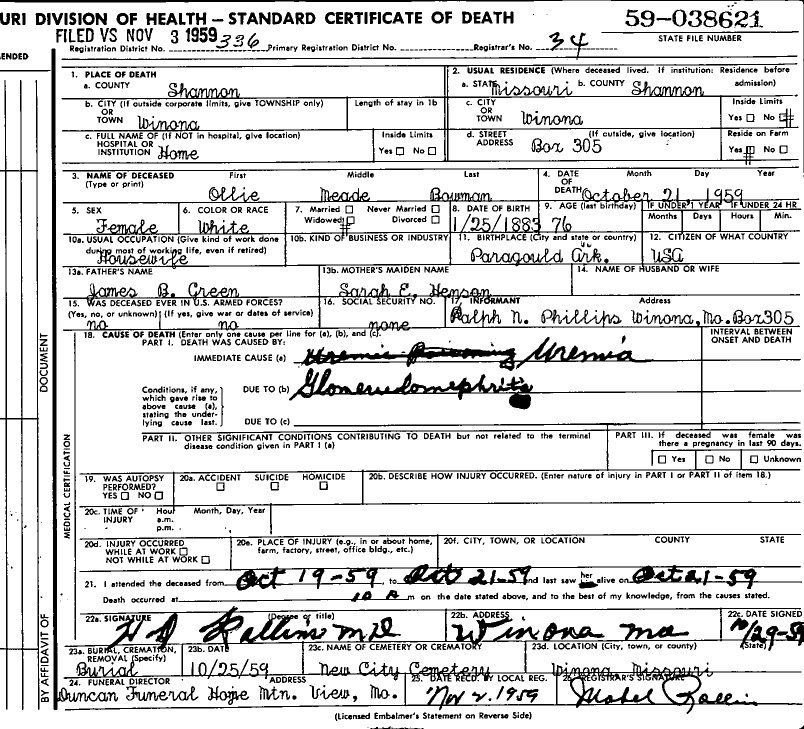 URI DIVISION OF HEALTH — STANDARD CERTIFICATE OF DEATH 59-038621
FILED VS NOV 3 1959 STATE FILE NUMBER
Registration District No. 336 Primary Registration District No. Registrar's No. 34
ENDED
1. PLACE OF DEATH 2. USUAL RESIDENCE (Where deceased lived. If institution: Residence before admission)
a. COUNTY Shannon a. STATE Missouri b. COUNTY Shannon
b. CITY (If outside corporate limits, give TOWNSHIP only) OR TOWN Winona Length of stay in 1b c. CITY OR TOWN Winona Inside Limits Yes □ No □
c. FULL NAME OF (If NOT in hospital, give location) HOSPITAL OR INSTITUTION Home Inside Limits Yes □ No □ d. STREET ADDRESS (If outside, give location) Box 305 Reside on Farm Yes □ No □
3. NAME OF DECEASED (Type or print) First Middle Last 4. DATE OF DEATH Month Day Year
Ollie Meade Bowman October 21 1959
5. SEX 6. COLOR OR RACE 7. Married □ Never Married □ Widowed □ Divorced □ 8. DATE OF BIRTH 9. AGE (last birthday) IF UNDER 1 YEAR IF UNDER 24 HR
Months Days Hours Min.
Female White 1/25/1883 76
10a. USUAL OCCUPATION (Give kind of work done during most of working life, even if retired) 10b. KIND OF BUSINESS OR INDUSTRY 11. BIRTHPLACE (City and state or country) 12. CITIZEN OF WHAT COUNTRY
Housewife Paragould Ark. USA
13a. FATHER'S NAME 13b. MOTHER'S MAIDEN NAME 14. NAME OF HUSBAND OR WIFE
James B. Green Sarah E. Henson
15. WAS DECEASED EVER IN U.S. ARMED FORCES? 16. SOCIAL SECURITY NO. 17. INFORMANT Address
(Yes, no, or unknown) (If yes, give war or dates of service)
no no none Ralph N. Phillips Winona, Mo. Box 305
18. CAUSE OF DEATH (Enter only one cause per line for (a), (b), and (c). INTERVAL BETWEEN ONSET AND DEATH
PART I. DEATH WAS CAUSED BY:
IMMEDIATE CAUSE (a) Uremic Poisoning Uremia
Conditions, if any, which gave rise to above cause (a), stating the underlying cause last. DUE TO (b) Glomerulomephritis
DUE TO (c)
PART II. OTHER SIGNIFICANT CONDITIONS CONTRIBUTING TO DEATH but not related to the terminal disease condition given in PART I (a) PART III. If deceased was female was there a pregnancy in last 90 days.
□ Yes □ No □ Unknown
19. WAS AUTOPSY PERFORMED? YES □ NO □ 20a. ACCIDENT □ SUICIDE □ HOMICIDE □ 20b. DESCRIBE HOW INJURY OCCURRED. (Enter nature of injury in PART I or PART II of item 18.)
20c. TIME OF INJURY Hour a.m. p.m. Month, Day, Year
20d. INJURY OCCURRED WHILE AT WORK □ NOT WHILE AT WORK □ 20e. PLACE OF INJURY (e.g., in or about home, farm, factory, street, office bldg., etc.) 20f. CITY, TOWN, OR LOCATION COUNTY STATE
21. I attended the deceased from Oct 19-59, to Oct 21-59 and last saw her alive on Oct 21-59
Death occurred at 10 A m on the date stated above, and to the best of my knowledge, from the causes stated.
22a. SIGNATURE (Degree or title) 22b. ADDRESS 22c. DATE SIGNED
Rollins MD Winona Mo 10/29-59
23a. BURIAL, CREMATION, REMOVAL (Specify) 23b. DATE 23c. NAME OF CEMETERY OR CREMATORY 23d. LOCATION (City, town, or county) (State)
Burial 10/25/59 New City Cemetery Winona, Missouri
24. FUNERAL DIRECTOR ADDRESS 25. DATE RECD. BY LOCAL REG. 26. REGISTRAR'S SIGNATURE
Duncan Funeral Home Mtn. View, Mo. Nov 2, 1959 Mabel Rollins
(Licensed Embalmer's Statement on Reverse Side)
DOCUMENT
MEDICAL CERTIFICATION
BY AFFIDAVIT OF